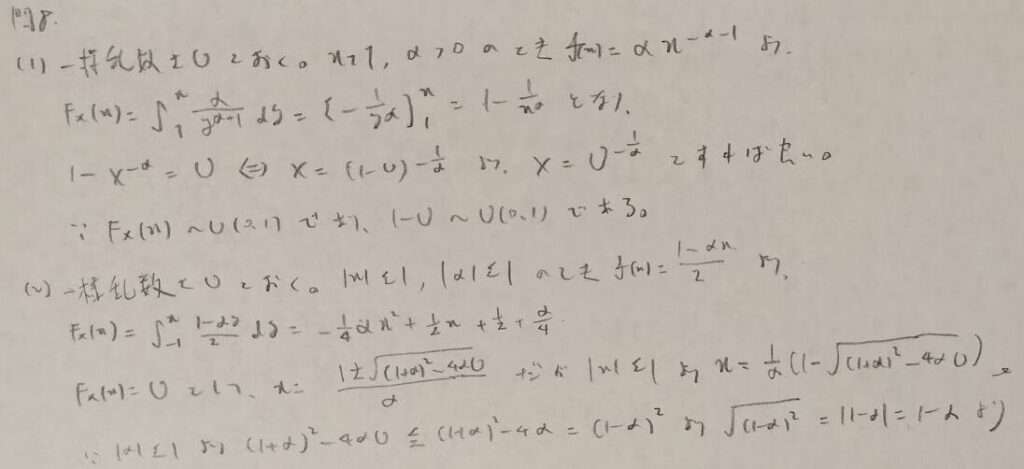 問8.
(1) 一様乱数をUとおく。x≧1, α>0 のとき f(x)=αx^{-α-1} より、
F_X(x)=∫_1^x α/y^{α+1} dy = [-1/y^α]_1^x = 1-1/x^α となり、
1-X^{-α}=U ⇔ X=(1-U)^{-1/α} より、X=U^{-1/α} とすればよい。
∵ F_X(x)~U(0,1) であり、1-U~U(0,1) である。
(2) 一様乱数をUとおく。|x|≦1, |α|≦1 のとき f(x)=(1-αx)/2 より、
F_X(x)=∫_{-1}^x (1-αy)/2 dy = -1/4 αx^2+1/2 x+1/2+α/4
F_X(x)=U として、x=(1±√((1+α)^2-4αU))/α だが |x|≦1 より x=1/α(1-√((1+α)^2-4αU))。
∵ |α|≦1 より (1+α)^2-4αU≦(1+α)^2-4α=(1-α)^2 より √((1-α)^2)=|1-α|=1-α より)